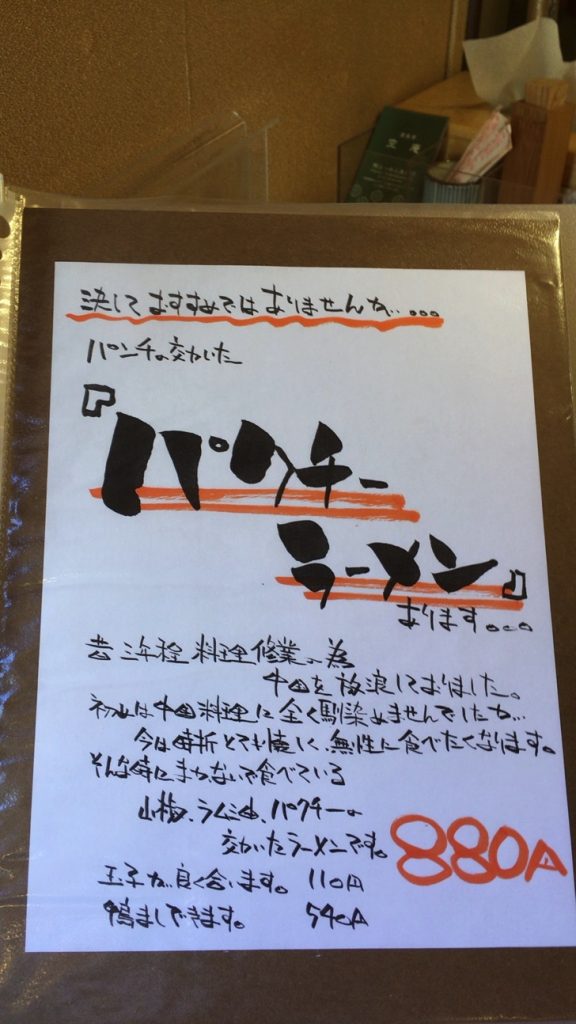 決しておすすめではありませんが...
パンチの効いた
『パクチー
ラーメン』
あります。。。
昔三年程料理修業の為
中国を放浪しておりました。
初めは中国料理に全く馴染めませんでしたが...
今は時折とても懐しく、無性に食べたくなります。
そんな時にまかないで食べている
山椒、ラー油、パクチーの
効いたラーメンです。
880円
玉子が良く合います。 110円
鴨ましできます。 540円